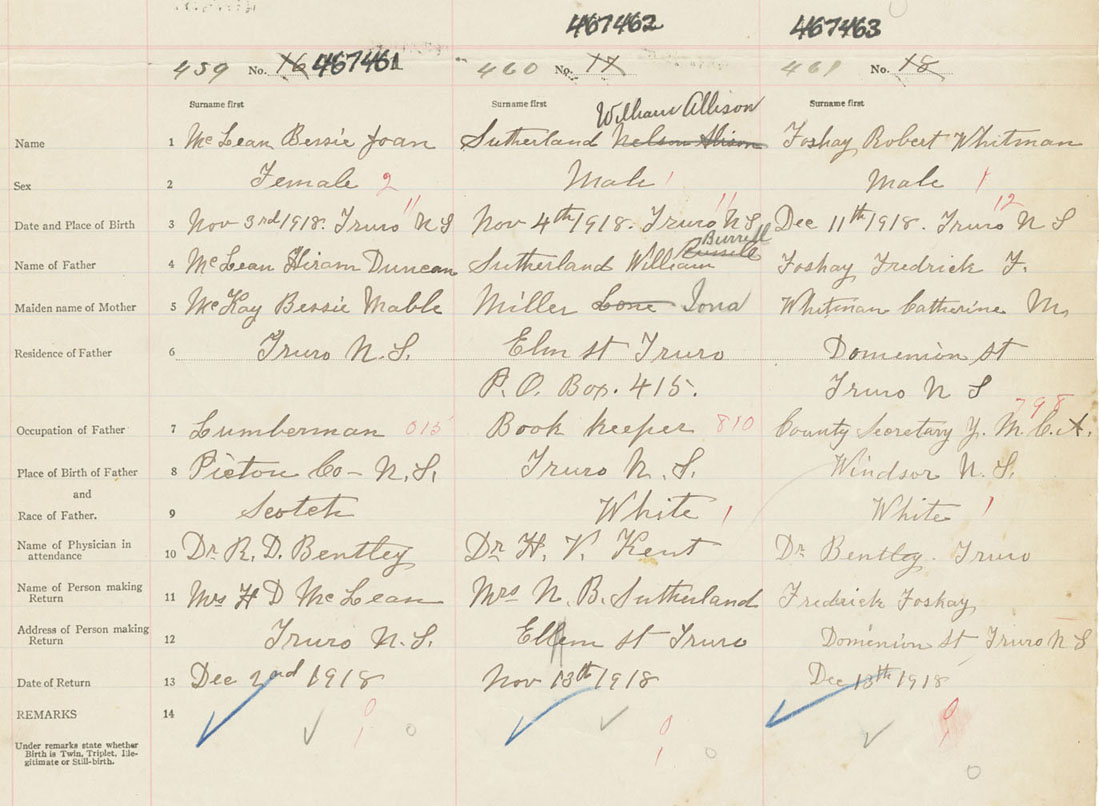 467462 467463
459 No. 16 467461 460 No. 17 461 No. 18
Surname first Surname first Surname first
William Allison
Name 1 McLean Bessie Joan Sutherland Nelson Alison Foshay Robert Whitman
Sex 2 Female 2 Male 1 Male 1
11 11 12
Date and Place of Birth 3 Nov 3rd 1918. Truro N S Nov 4th 1918. Truro N S Dec 11th 1918. Truro N S
Burrell
Name of Father 4 McLean Hiram Duncan Sutherland William Russell Foshay Fredrick F.
Maiden name of Mother 5 McKay Bessie Mable Miller Lone Iona Whitman Catherine M,
Residence of Father 6 Truro N.S. Elm st Truro Domenion st
P.O. Box. 415. Truro N S
798
Occupation of Father 7 Lumberman 015 Book keeper 810 County Secretary Y.M.C.A.
Place of Birth of Father 8 Pictou Co- N.S. Truro N.S. Windsor N.S.
and
Race of Father. 9 Scotch White 1 White 1
Name of Physician in
attendance 10 Dr. R. D. Bentley Dr H. V. Kent Dr Bentley. Truro
Name of Person making
Return 11 Mrs H D McLean Mrs N. B. Sutherland Fredrick Foshay
Address of Person making
Return 12 Truro N.S. Elm st Truro Domenion st Truro N S
Date of Return 13 Dec 2nd 1918 Nov 13th 1918 Dec 13th 1918
REMARKS 14
0 0 0
1 0 1 0 1 0
Under remarks state whether
Birth is Twin, Triplet, Ille-
gitimate or Still-birth.